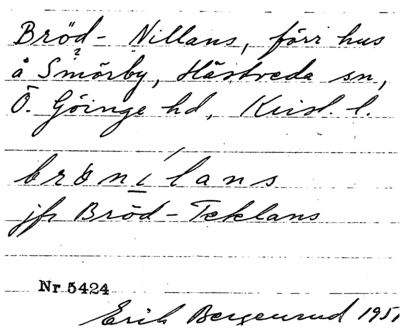 Bröd- Nillans, förr hus
å Smörby, Hästveda sn,
Ö. Göinge hd, Krist. l.
brønilans
jfr Bröd-Teklans
Nr 5424
Erik Bergenrud 1951